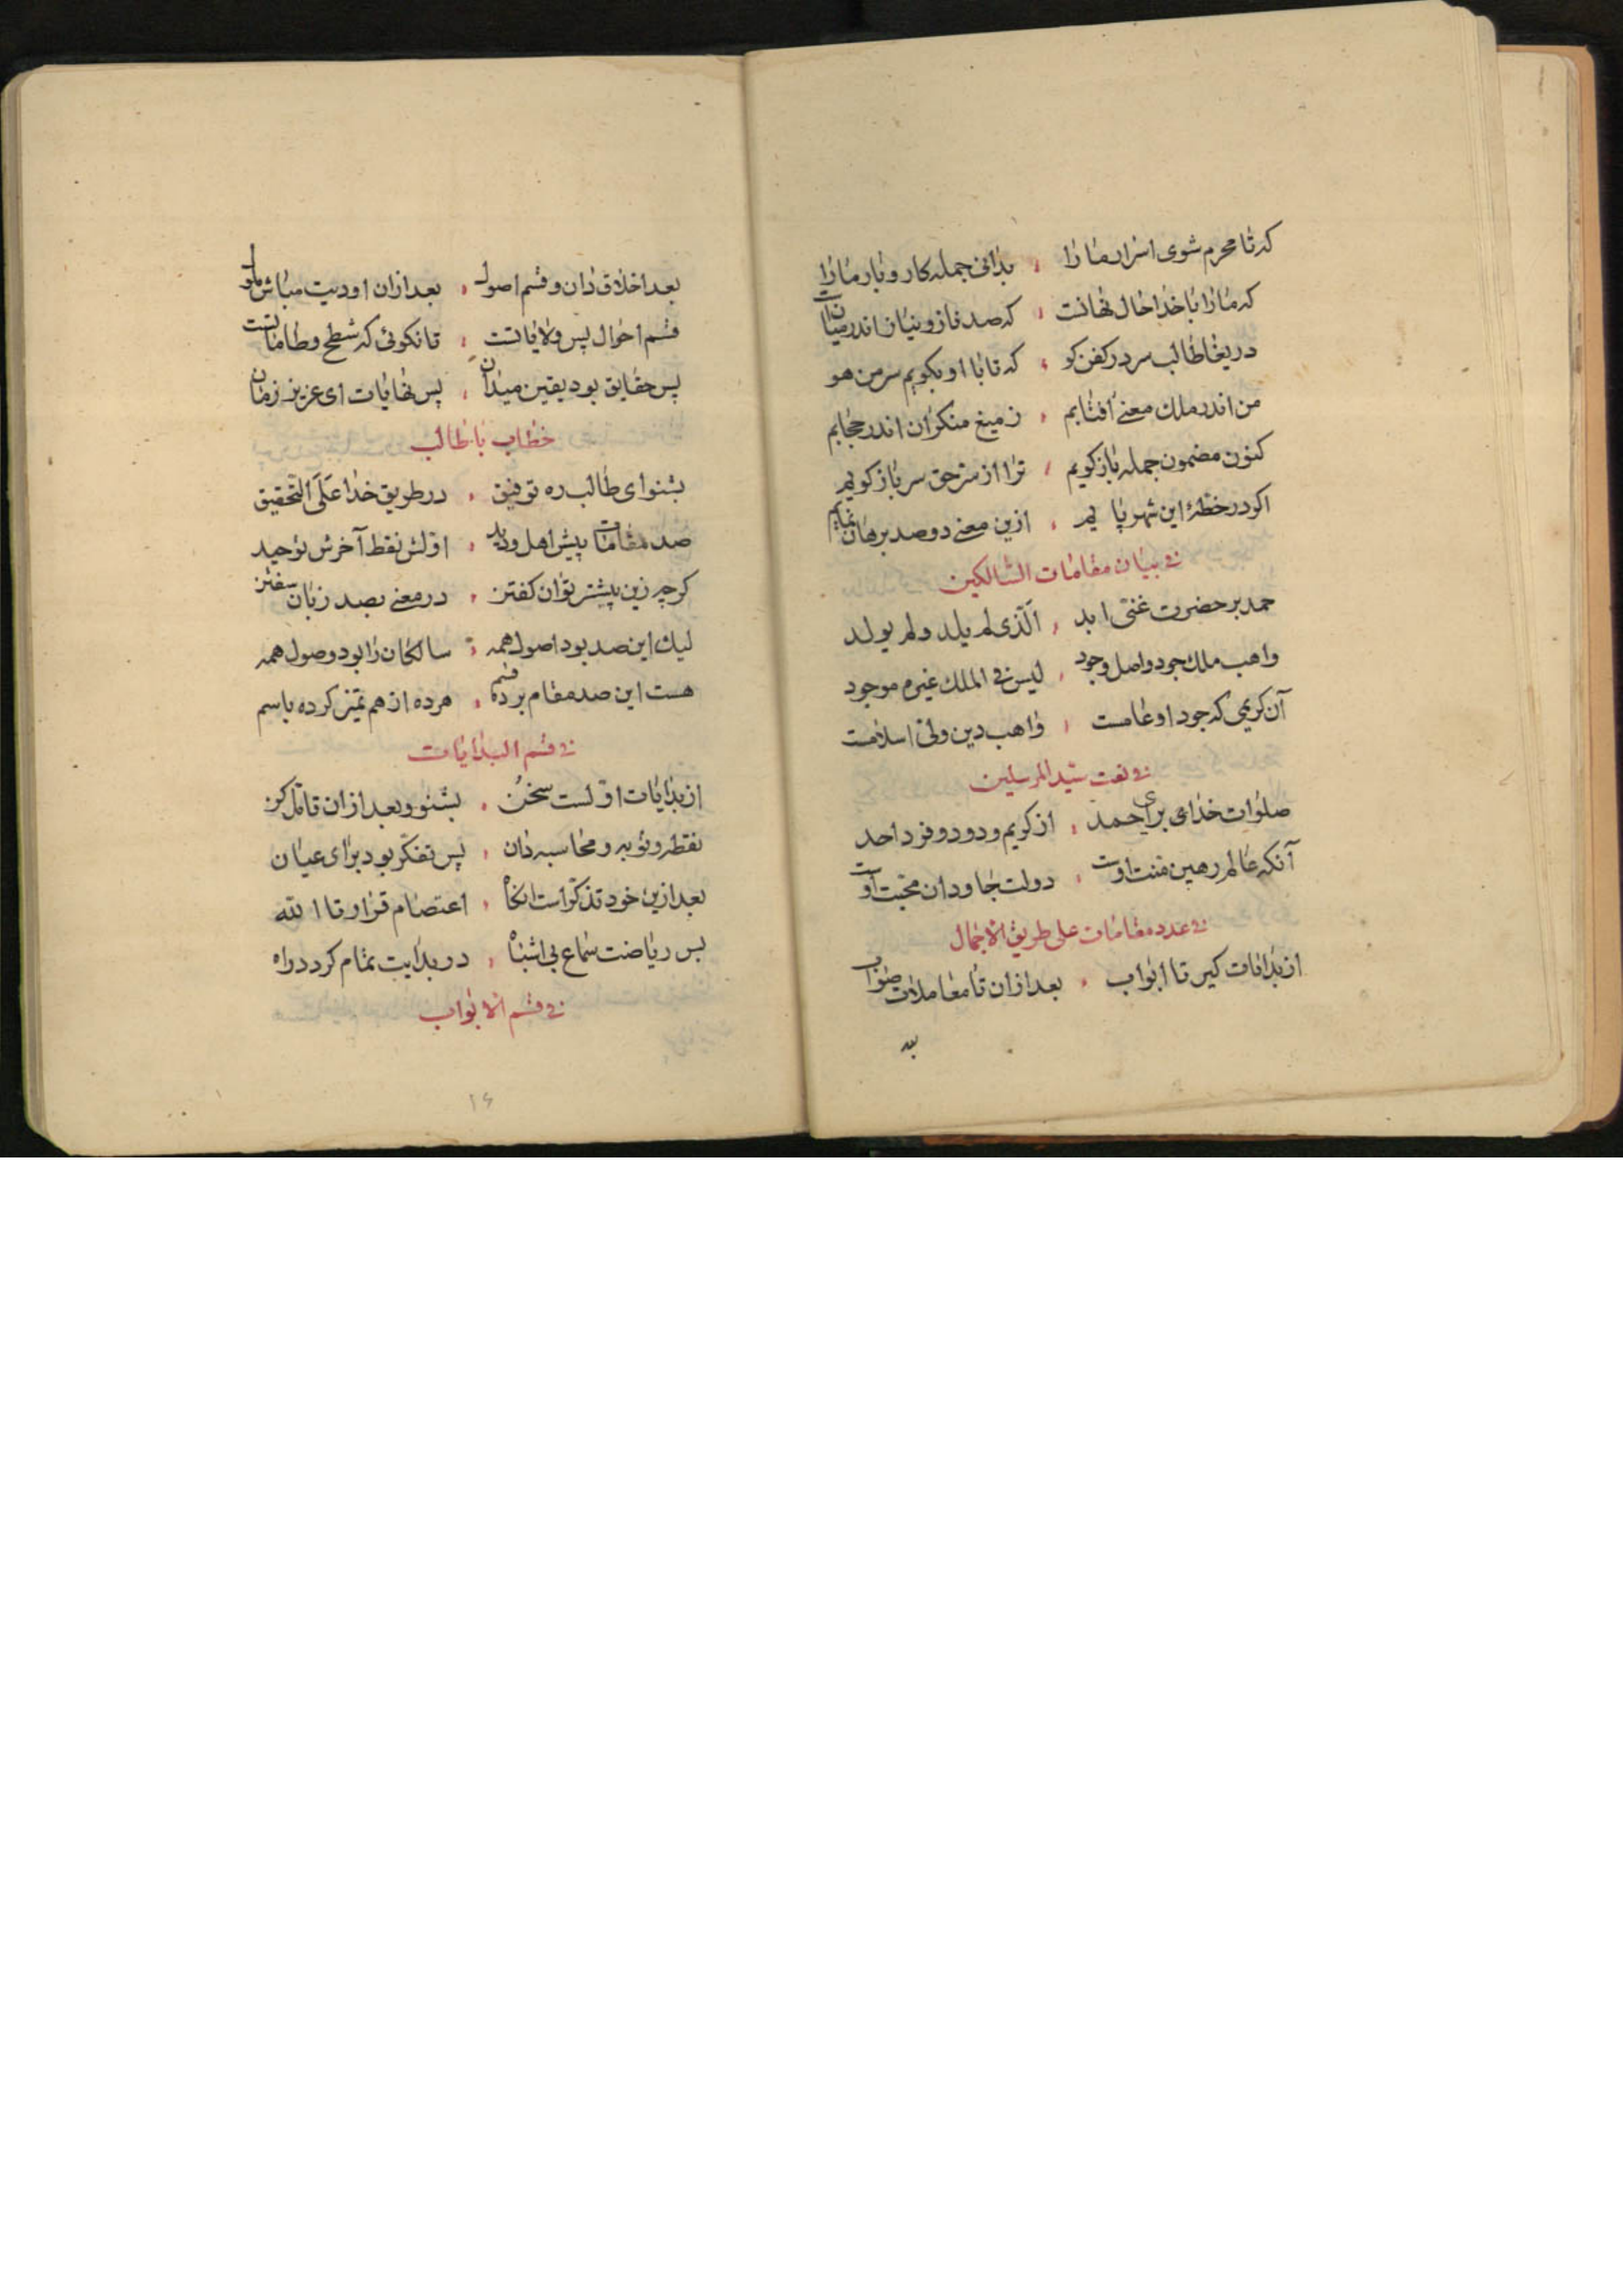 که تا محرم شوی اسرار ما را ، بدانی جمله کار و بار ما را
که ما را با خدا حال نهانست ، که صد ناز و نیاز اندر میان است
دریغا طالب سر در کفن کو ، که تا با او بکویم سر من هو
من اندر ملک معنی آفتابم ، ز میغ منکران اندر حجابم
کنون مضمون جمله باز کویم ، ترا از سر حق سر باز کویم
اکر در خطهٔ این شهر پا یم ، ازین معنے دو صد برهان نمایم
فی بیان مقامات السالکین
حمد بر حضرت غنی ابد ، الّذی لم یلد ولم یولد
واهب ملک جود واصل وجود ، لیس فی الملک غیره موجود
آن کریمی که جود او عامست ، واهب دین ولی اسلامست
فی نعت سیّد المرسلین
صلوات خدای بر احمد ، از کریم و دود و فرد احد
آنکه عالم رهین منت اوست ، دولت جاودان محبّت اوست
فی عدد مقامات علی طریق الاجمال
از بدایات کیر تا ابواب ، بعد از ان تا معاملات صواب
بعد اخلاق دان و قسم اصول ، بعد ازان اودیت مباش ملول
قسم احوال پس ولایاتست ، تا نکوئی که شطح و طاماتست
پس حقایق بود یقین میدان ، پس نهایات ای عزیز زمان
خطاب با طالب
بشنو ای طالب ره توفیق ، در طریق خدا عَلَی التّحقیق
صد مقامات پیش اهل و ، اوّلش نقط آخرش توحید
کرچه زین پیشتر توان کفتن ، در معنے بصد زبان سفتن
لیک این صد بود اصول همه ، سالکان را بود وصول همه
هست این صد مقام بر ده قسم ، هر ده از هم تمیز کرده باسم
فی قسم البدایات
از بدایات اوّلست سخن ، بشنو و بعد ازان تامّل کن
نقطه و توبه و محاسبه دان ، پس تفکّر بود برای عیان
بعد ازین خود تذکّر است انکاه ، اعتصام قرار تا اللّه
پس ریاضت سماع بی اشباه ، در بدایت تمام کردد راه
فی قسم الابواب
۱۶